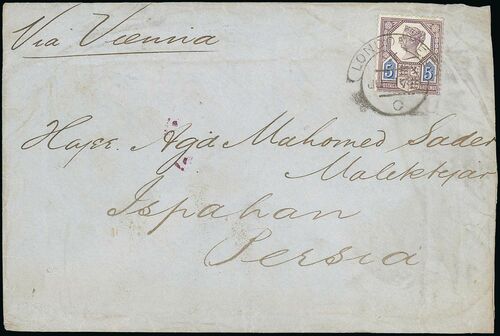 Via Vienna
LONDON
5 5
C
Hajee. Aga Mahomed Sadek
Malektejar
Ispahan
Persia